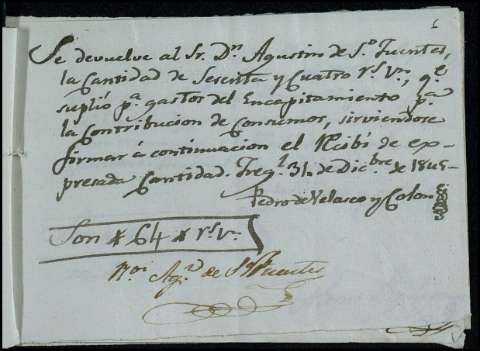 Se devuelve al Sr. Dn. Agustin de Sto. Fuentes,
la Cantidad de Sesenta y Cuatro rs. Vn., qe.
suplió pa. gastos del Encapitamiento pa.
la Contribucion de Consumos, sirviendose
firmar á continuacion el Recibí de ex-
presada Cantidad. Freql. 31 de Dicbre. de 1845-
Pedro de Velasco y Colon
Son * 64 * rs. Vn.
Agn. de Sto. Fuentes